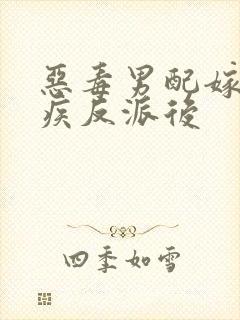 惡毒男配嫁
疾反派後
四季如雪